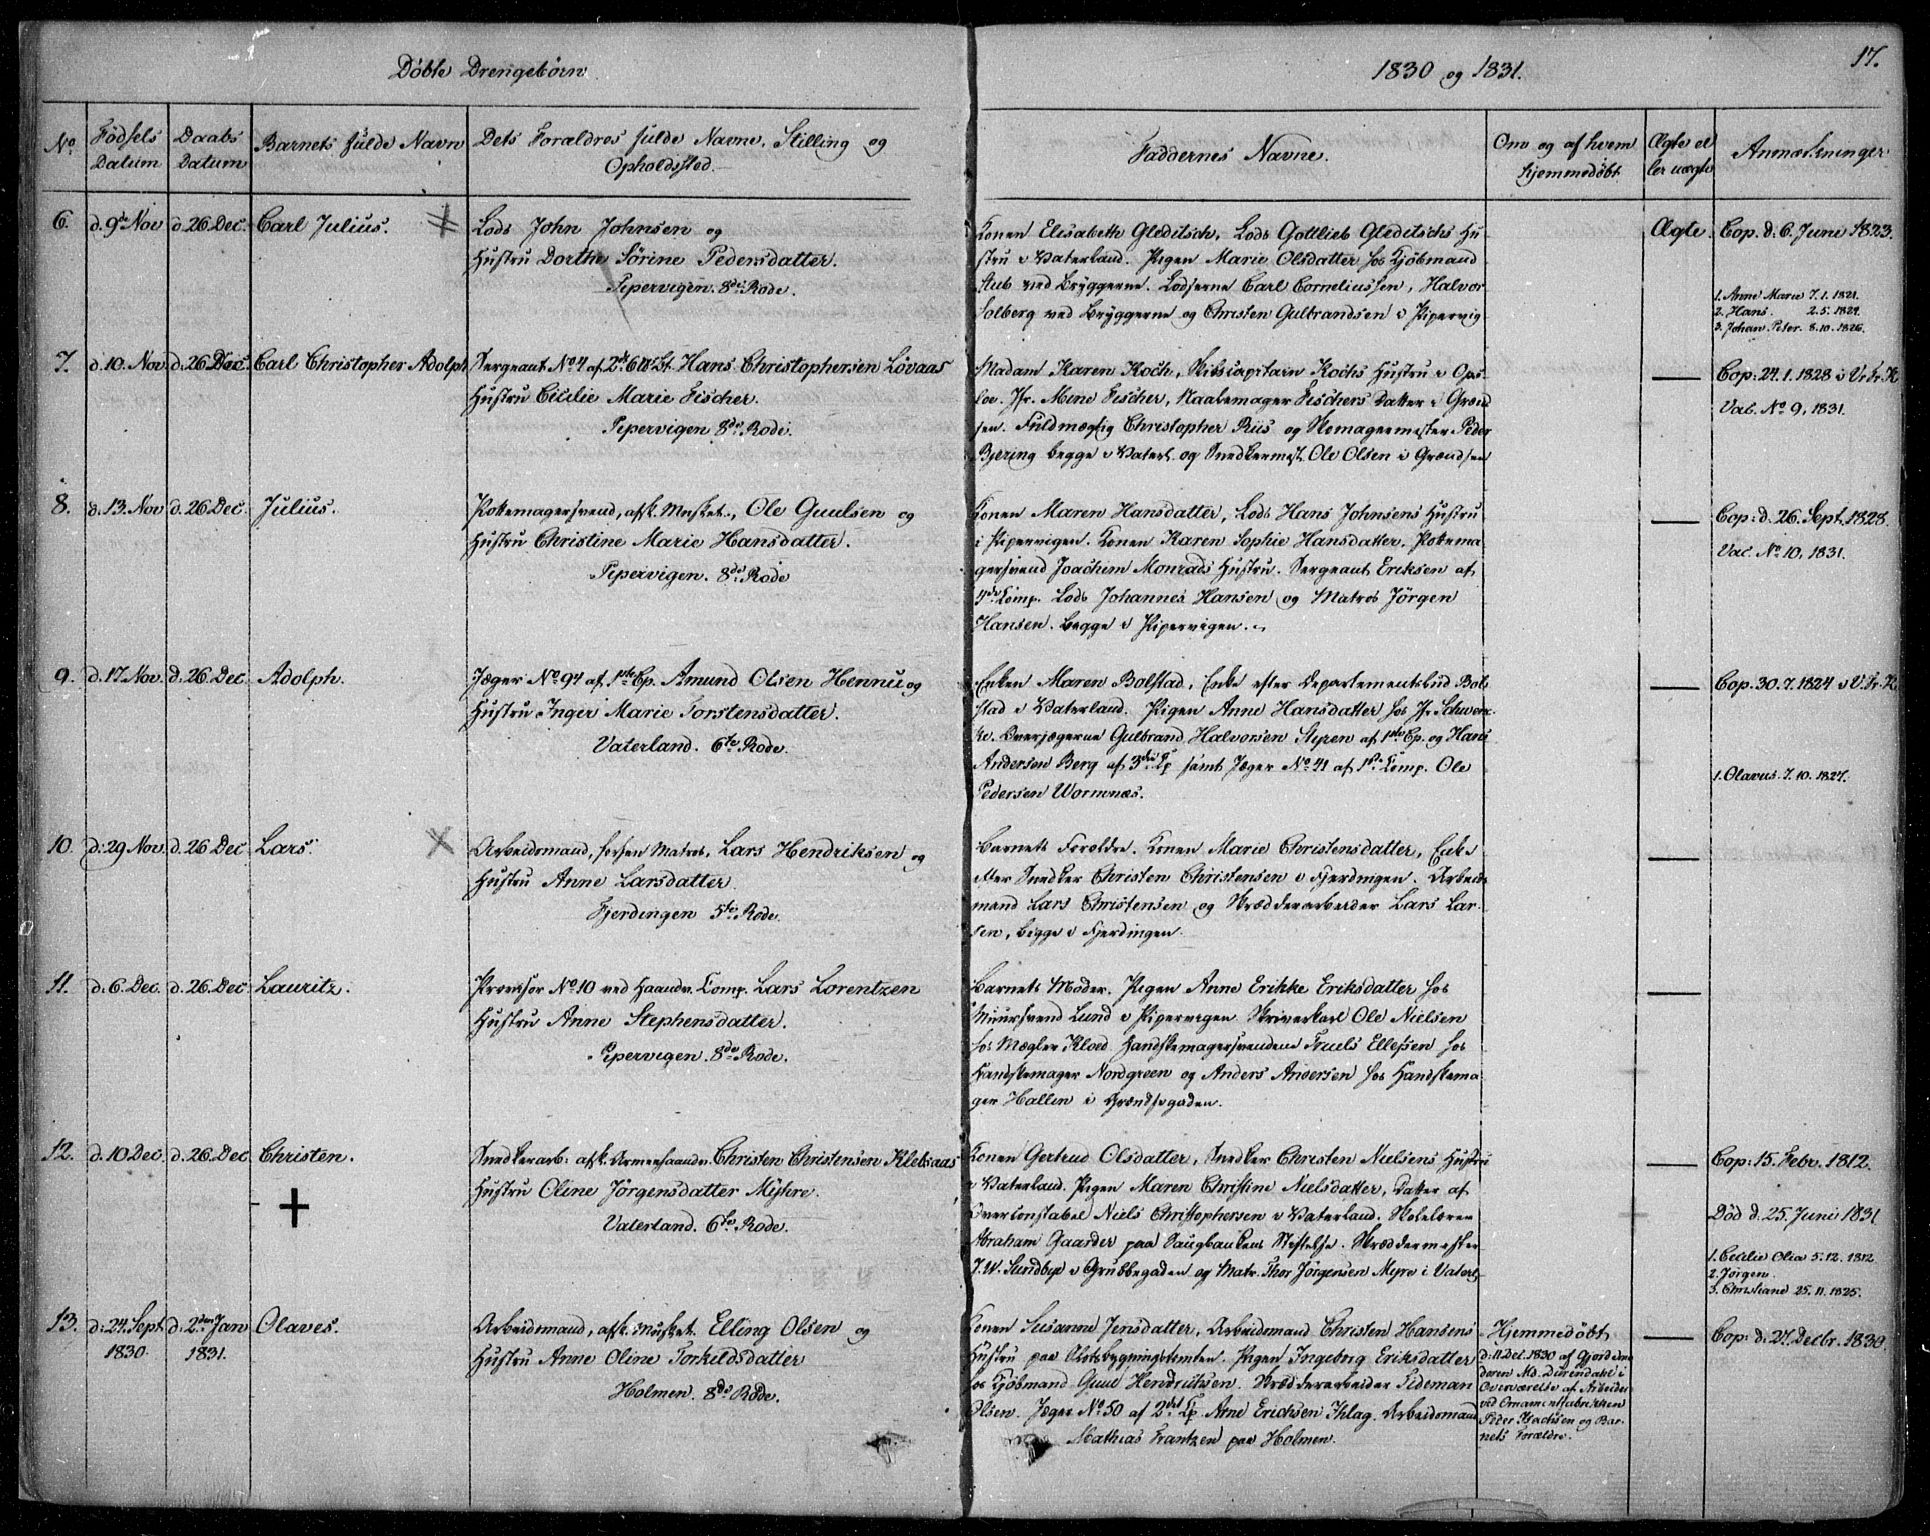 Døbte Drengebørn
1830 og 1831.
17.
No. Fødsels Datum Daabs Datum Barnets fulde Navn Dets Forældres fulde Navne, Stilling og Opholdssted. Faddernes Navne. Om og af hvem hjemmedøbt. Ægte eller uægte Anmærkninger
6. d. 9de Nov d. 26 Dec. Carl Julius.
Lods John Johnsen og
Hustru Dorthe Sørine Pedersdatter.
Pipervigen. 8de Rode.
Konen Elisabeth Gleditsch, Lods Gottlieb Gleditschs Hu-
stru i Vaterland. Pigen Marie Olsdatter hos Kjøbmand
Aub ved Bryggerne. Lodserne Carl Corneliussen, Halvor
Solberg ved Bryggerne og Christen Gulbrandsen i Pipervig
Ægte.
Cop. d. 6. Juni 1823.
1. Anne Marie 7.1.1821.
2. Hans. 2.5.1824.
3. Johan Peter. 8.10.1826.
7. d. 10. Nov. d. 26 Dec. Carl Christopher Adolph
Sergeant No. 4 af 2det Hans Christophersen Løvaas
Hustru Cicilie Marie Fischer.
Pipervigen 8de Rode.
Madam Karen Koch, Skibscapitain Kochs Hustru i Ops-
loe. Jfr. Mine Fischer, Naalemager Fischers Datter i Grænd
sen. Fuldmægtig Christopher Riis og Skomagermester Peder
Bjering begge i Vaterl. og Snedkermest. Ole Olsen i Grændsen
Cop: 24.1.1828 i V. Fr. K
Vac. No 9, 1831.
8. d. 13. Nov d. 26 Dec. Julius.
Pottemagersvend, afsk. Musket., Ole Guulsen og
Hustru Christine Marie Hansdatter.
Pipervigen. 8de Rode
Konen Maren Hansdatter, Lods Hans Johnsens Hustru
i Pipervigen. Konen Karen Sophie Hansdatter, Pottema-
gersvend Joachim Monrads Hustru. Sergeant Eriksen af
4de Komp. Lods Johannes Hansen og Matros Jørgen
Hansen. begge i Pipervigen.
Cop: d. 26. Sept. 1828.
Vac. No. 10, 1831.
9. d. 17. Nov. d. 26 Dec Adolph.
Jæger No 94 af 1ste Cp. Amund Olsen Hennu og
Hustru Inger Marie Torstensdatter.
Vaterland. 6te Rode.
Enken Maren Bolstad, Enke efter Departementsbud Bol-
stad i Vaterland. Pigen Anne Hansdatter hos Jfr Schwenc
ke. Overjægerne Gulbrand Halvorsen Styren af 1ste Cp. og Hans
Andersen Berg af 3die Cp samt Jæger No. 41 af 1ste Komp. Ole
Pedersen Wormnæs.
Cop. 30.7.1824 i V. Fr. K
1. Olavus. 7.10.1827.
10. d. 29 Nov. d. 26 Dec Lars.
Arbeidsmand, forhen Matros, Lars Hendriksen og
Hustru Anne Larsdatter
Fjerdingen 5te Rode.
Barnets Forældre. Konen Marie Christensdatter, Enke
efter Snedker Christen Christensen i Fjerdingen. Arbeids
mand Lars Christensen og Skrædderarbeider Lars Lar-
sen, begge i Fjerdingen.
11. d. 6. Dec. d. 26. Dec Lauritz.
Provisor No. 10 ved Haandv. Komp. Lars Lorentzen
Hustru Anne Stephensdatter.
Pipervigen. 8de Rode.
Barnets Moder. Pigen Anne Erikke Eriksdatter hos
Muursvend Lund i Pipervigen. Skriverkarl Ole Nielsen
hos Mægler Kloed. Handskemagersvendene Truels Ellefsen hos
Handskemager Nordgreen og Anders Andersen hos Handskema-
ger Hallin i Grændsegaden.
12. d. 10 Dec. d. 26. Dec Christen.
Snedkerarb. afsk. Armeehaandv. Christen Christensen Klebsaas
Hustru Oline Jørgensdatter Myhre.
Vaterland. 6te Rode.
Konen Gertrud Olsdatter, Snedker Christen Nielsens Hustru
i Vaterland. Pigen Maren Christine Nielsdatter, Datter af
Overconstabel Niels Christophersen i Vaterland. Skolelærer
Abraham Gaarder paa Saugbankens Stiftelse. Skræddermester
J. W. Sundbye i Grubbegaden og Matr. Thor Jørgensen Myre i Vaterl.
Cop: 15. Febr. 1812.
Død d. 25. Juni 1831
1. Cecilie Olia 5.12.1812
2. Jørgen.
3. Christiane 25.11.1825.
13. d. 24. Sept 1830. d. 2den Jan 1831. Olaves.
Arbeidsmand, afsk. Musket. Elling Olsen og
Hustru Anne Oline Torkeldsdatter
Holmen. 8de Rode.
Konen Susanne Jensdatter, Arbeidsmand Christen Hansens
Hustru paa Slotsbygningstomten. Pigen Ingeborg Eriksdatter
hos Kjøbmand Guul Hendriksen. Skrædderarbeider Tideman
Olsen. Jæger No. 50 af 2det Cp. Arne Erichsen Ihlag. Arbeidsmand
Mathias Frantzen paa Holmen.
Hjemmedøbt
d. 11. Oct. 1830 af Gjordemo-
deren Md. Durendahl i
Overværelse af Arbeider
ved Ornamentfabrikken
Peter Isachsen og Bar-
nets Forældre.
Cop: d. 27. Decbr. 1830.